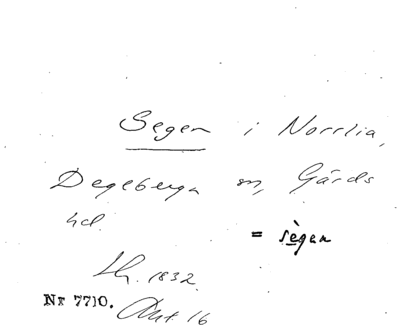 Segen i Norrlia,
Degeberga sn, Gärds
hd.
= sègen
Lh. 1832.
Nr 7710. Akt 16